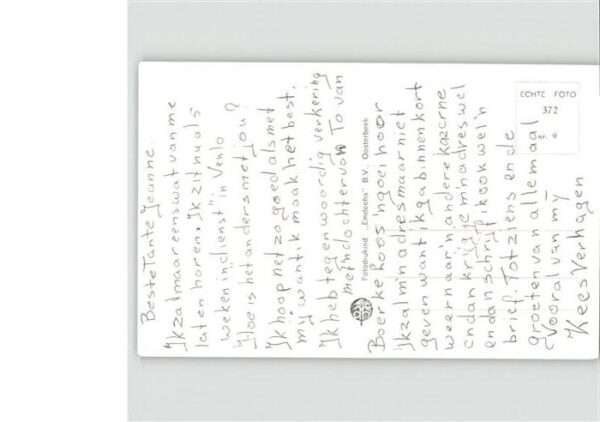 Beste Tante Jeanne.
Ik zal maar eens wat van me
laten horen. Ik zit nu als
weken in dienst" in Venlo
Hoe is het anders met jou?
Ik hoop net zo goed als met
mij want ik maak het best.
Ik heb tegenwoordig verkering
met'n dochter von To van
Fotodrukind. „Eindochs" B.V., Oosterbeek
ECHTE FOTO
372
Boerke koos n goei hoor
Ik zal m'n adres maar niet
geven want ik ga binnenkort
weer naar'n andere kazerne
en dan krijg je m'n adres wel
en dan schrijf ik ook wel 'n
brief. Tot ziens en de
groeten van allemaal
Vooral van mij
Kees Verhagen